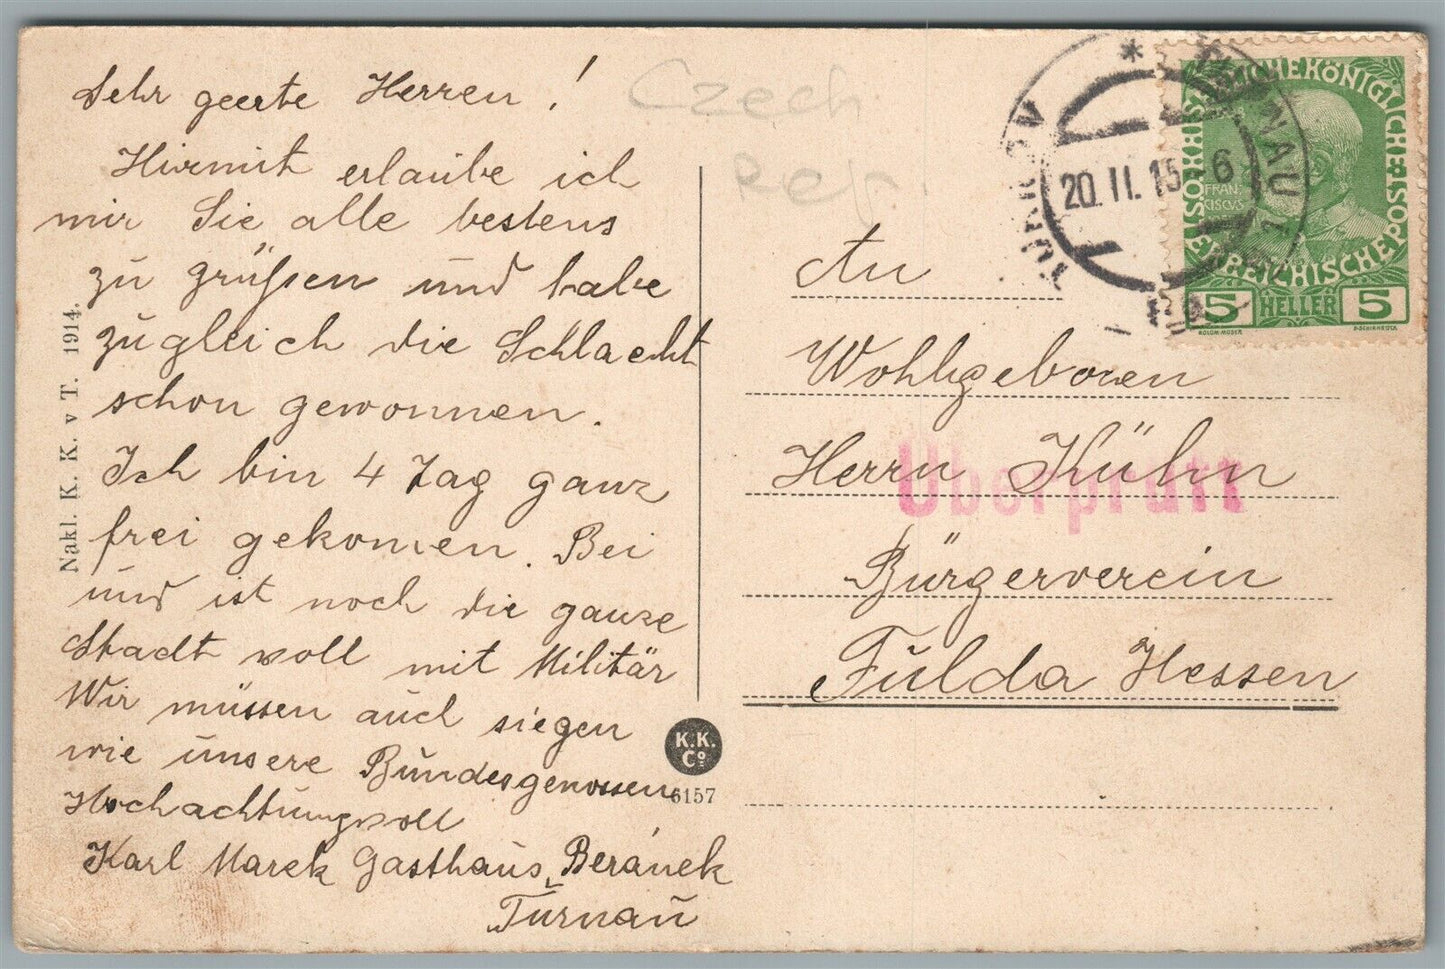 Sehr geerte Herren!
Hirmit erlaube ich
mir Sie alle bestens
zu grüßen und habe
zugleich die Schlacht
schon gewonnen.
Ich bin 4 Tag ganz
frei gekommen. Bei
und ist noch die ganze
Stadt voll mit Militär
Wir müssen auch siegen
wie unsere Bundesgenossen
Hochachtungsvoll
Karl Marek Gasthaus Beránek
Turnau
Nakl. K. K. v T. 1914.
K. K.
Co
6157
Czech
Rep.
TURNOV
TURNAU 1
20. II. 15 6
KAISERLICHE KÖNIGLICHE ÖSTERREICHISCHE POST
FRAN
CISCVS
5 HELLER 5
KOLOM·MOSER
F·SCHIRNBÖCK
An
Wohlgeboren
Herrn Kühn
Überprüft
Bürgerverein
Fulda Hessen